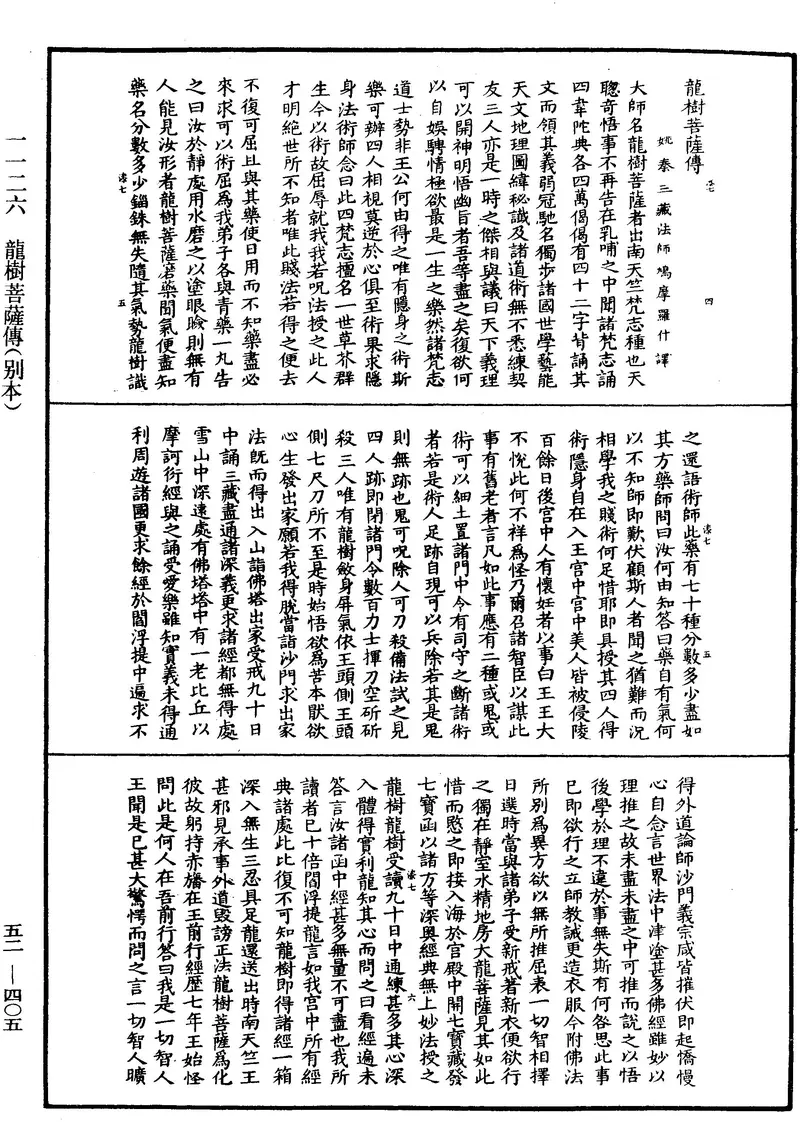 龍樹菩薩傳
姚秦三藏法師鳩摩羅什譯
大師名龍樹菩薩者出南天竺梵志種也天
聰奇悟事不再告在乳哺之中聞諸梵志誦
四韋陀典各四萬偈偈有四十二字背誦其
文而領其義弱冠馳名獨步諸國世學藝能
天文地理圖緯秘讖及諸道術無不悉練契
友三人亦是一時之傑相與議曰天下義理
可以開神明悟幽旨者吾等盡之矣復欲何
以自娛騁情極欲最是一生之樂然諸梵志
道士勢非王公何由得之唯有隱身之術斯
樂可辦四人相視莫逆於心俱至術果求隱
身法術師念曰此四梵志擅名一世草芥群
生今以術故屈辱就我我若呪法授之此人
才明絕世所不知者唯此賤法若得之便去
不復可屈且與其藥使日用而不知藥盡必
來求可以術屈為我弟子各與青藥一丸告
之曰汝於靜處用水磨之以塗眼瞼則無有
人能見汝形者龍樹菩薩磨藥聞氣便盡知
藥名分數多少錙銖無失隨其氣勢龍樹識
之還語術師此藥有七十種分數多少盡如
其方藥師問曰汝何由知答曰藥自有氣何
以不知師即歎伏顧斯人者聞之猶難而況
相學我之賤術何足惜耶即具授其四人得
術隱身自在入王宮中宮中美人皆被侵陵
百餘日後宮中人有懷妊者以事白王王大
不悅此何不祥為怪乃爾召諸智臣以謀此
事有舊老者言凡如此事應有二種或鬼或
術可以細土置諸門中令有司守之斷諸術
者若是術人足跡自現可以兵除若其是鬼
則無跡也鬼可呪除人可刀殺備法試之見
四人跡即閉諸門令數百力士揮刀空斫斫
殺三人唯有龍樹斂身屏氣依王頭側王頭
側七尺刀所不至是時始悟欲為苦本猒欲
心生發出家願若我得脫當詣沙門求出家
法既而得出入山詣佛塔出家受戒九十日
中誦三藏盡通諸深義更求諸經都無得處
雪山中深遠處有佛塔塔中有一老比丘以
摩訶衍經與之誦受愛樂雖知實義未得通
利周遊諸國更求餘經於閻浮提中遍求不
得外道論師沙門義宗咸皆摧伏即起憍慢
心自念言世界法中津塗甚多佛經雖妙以
理推之故未盡未盡之中可推而說之以悟
後學於理不違於事無失斯有何咎思此事
已即欲行之立師教誡更造衣服令附佛法
所別為異方欲以無所推屈表一切智相擇
日選時當與諸弟子受新戒著新衣便欲行
之獨在靜室水精地房大龍菩薩見其如此
惜而愍之即接入海於宮殿中開七寶藏發
七寶函以諸方等深奧經典無上妙法授之
龍樹龍樹受讀九十日中通練甚多其心深
入體得實利龍知其心而問之曰看經遍未
答言汝諸函中經甚多無量不可盡也我所
讀者已十倍閻浮提龍言如我宮中所有經
典諸處此比復不可知龍樹即得諸經一箱
深入無生三忍具足龍還送出時南天竺王
甚邪見承事外道毀謗正法龍樹菩薩為化
彼故躬持赤旛在王前行經歷七年王始怪
問此是何人在吾前行答曰我是一切智人
王聞是已甚大驚愕而問之言一切智人曠
一一二六　龍樹菩薩傳（别本）
五二—四〇五